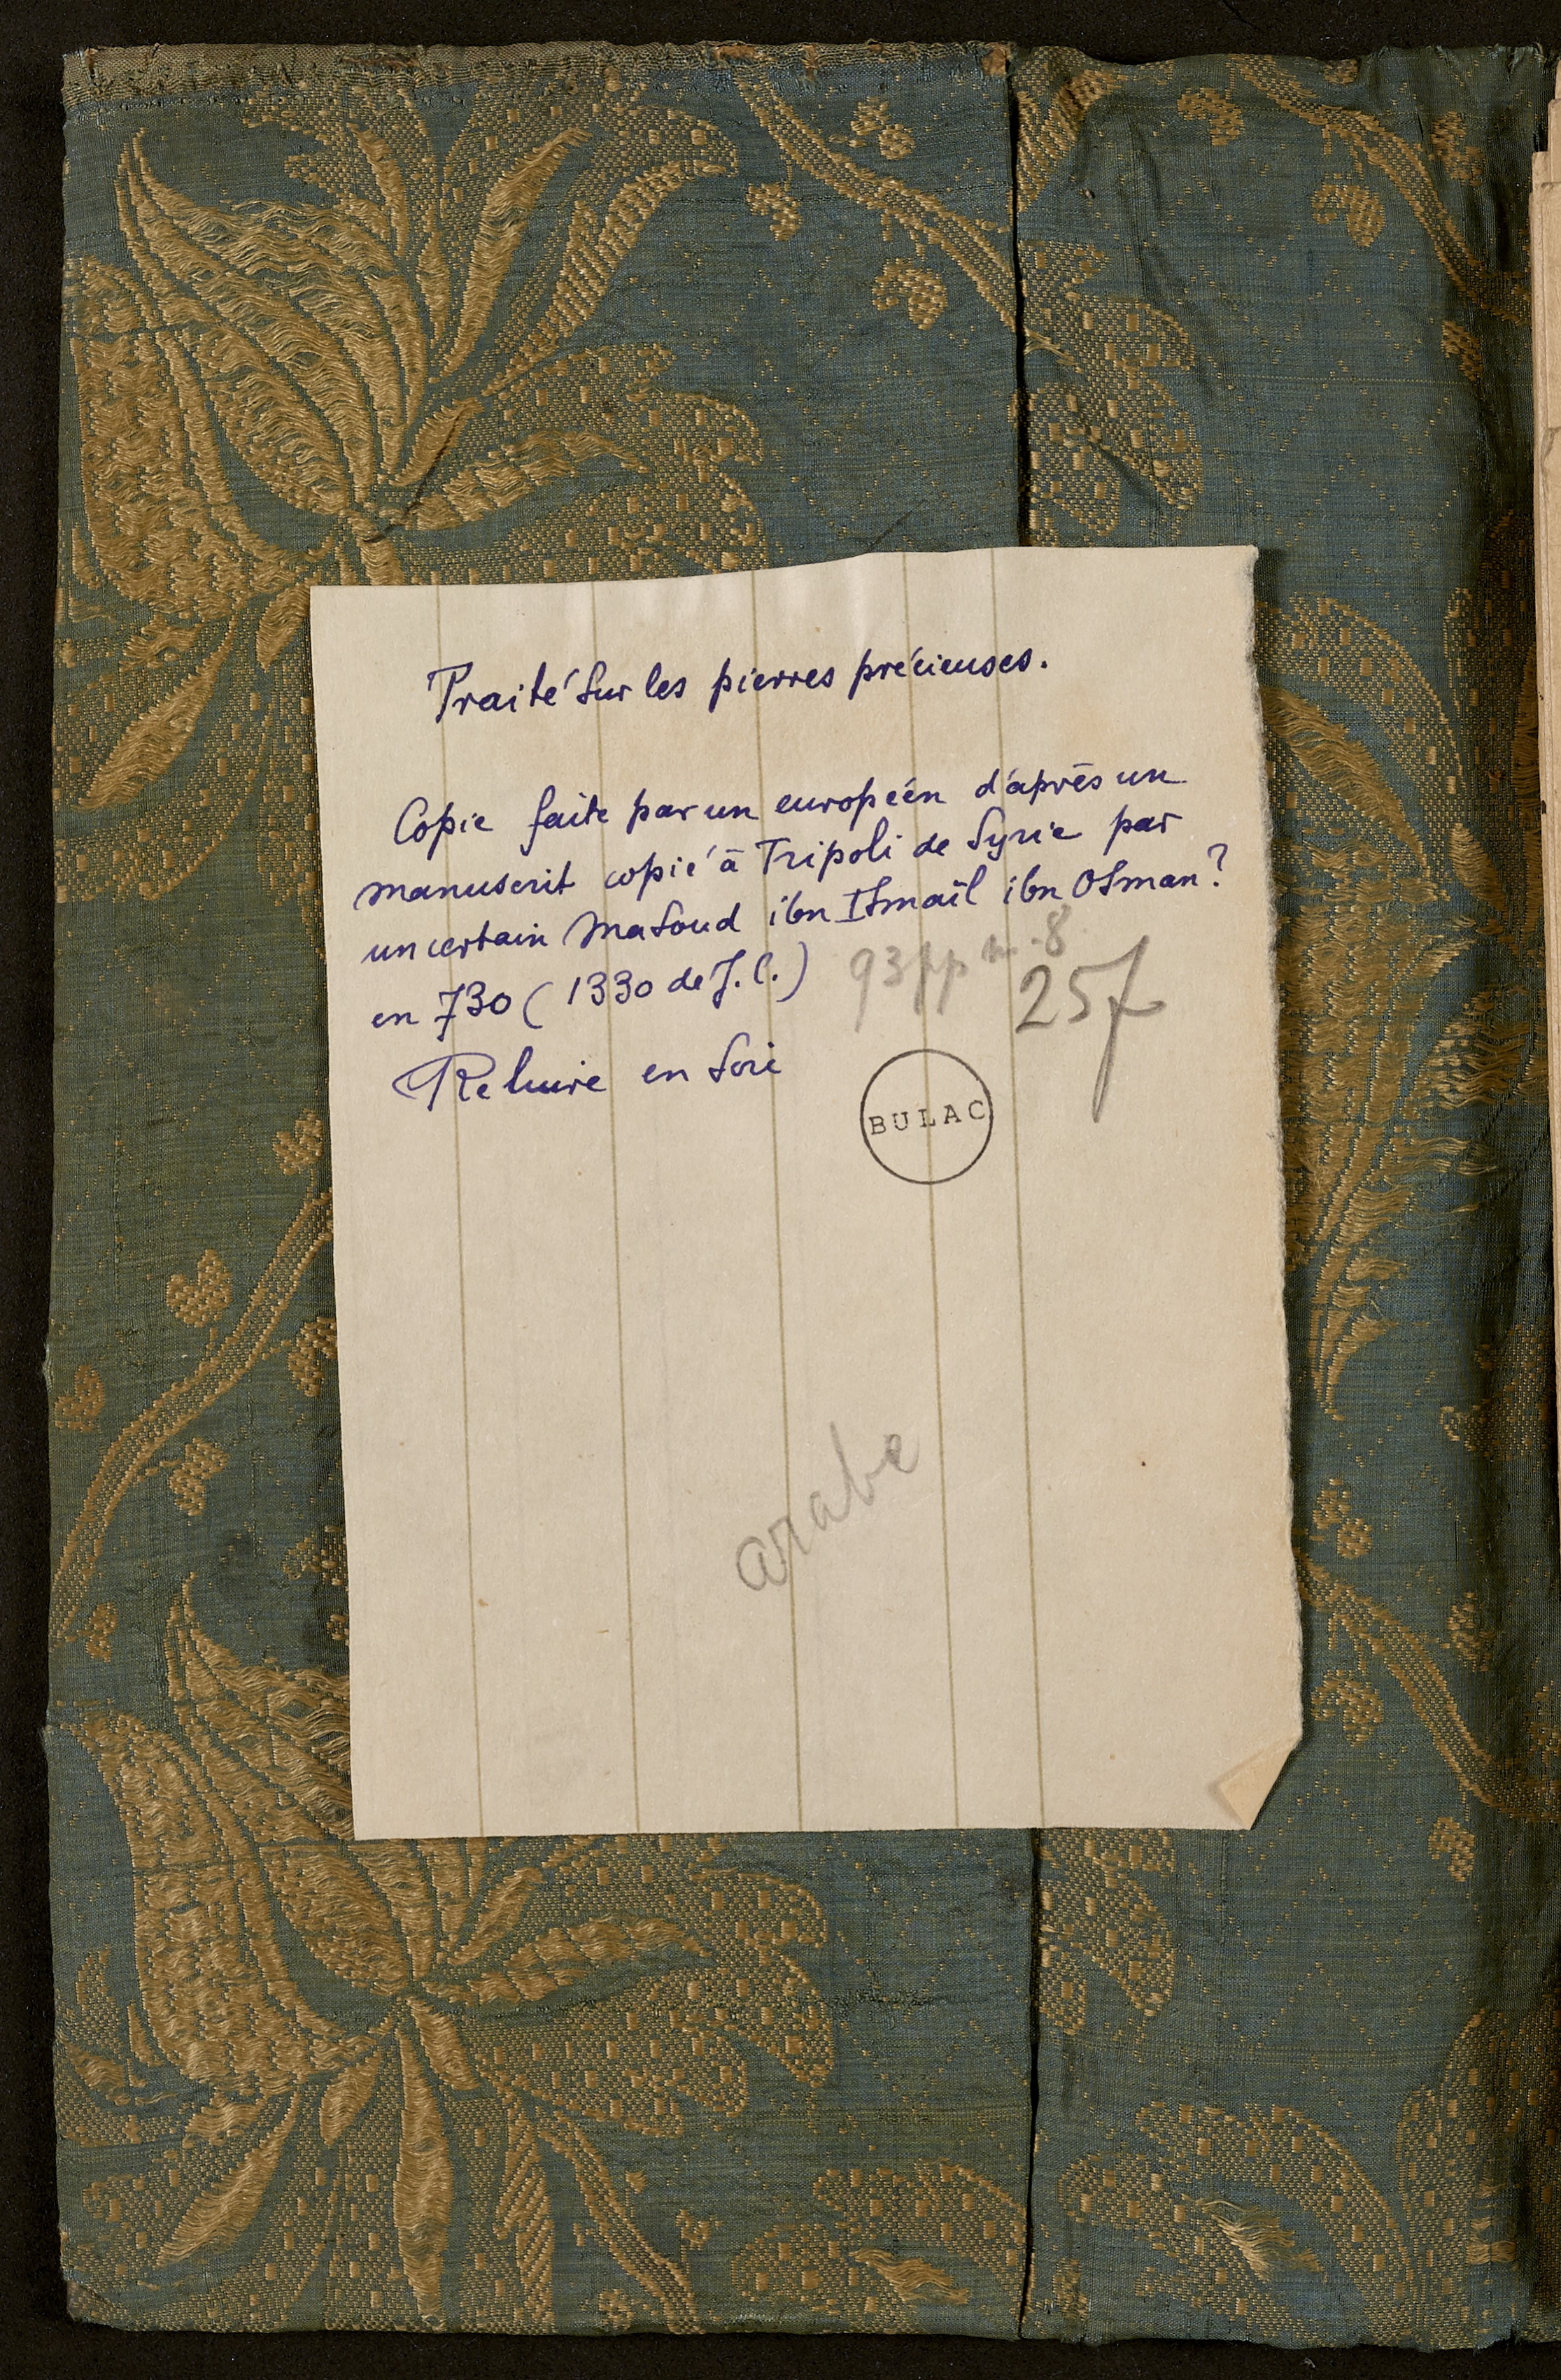 Traité sur les pierres précieuses.
Copie faite par un européen d'après un
manuscrit copié à Tripoli de Syrie par
un certain Masoud ibn Ismaïl ibn Osman?
en 730 (1330 de J.C.)
93 pp in-8.
25
Reliure en soie
BULAC
arabe